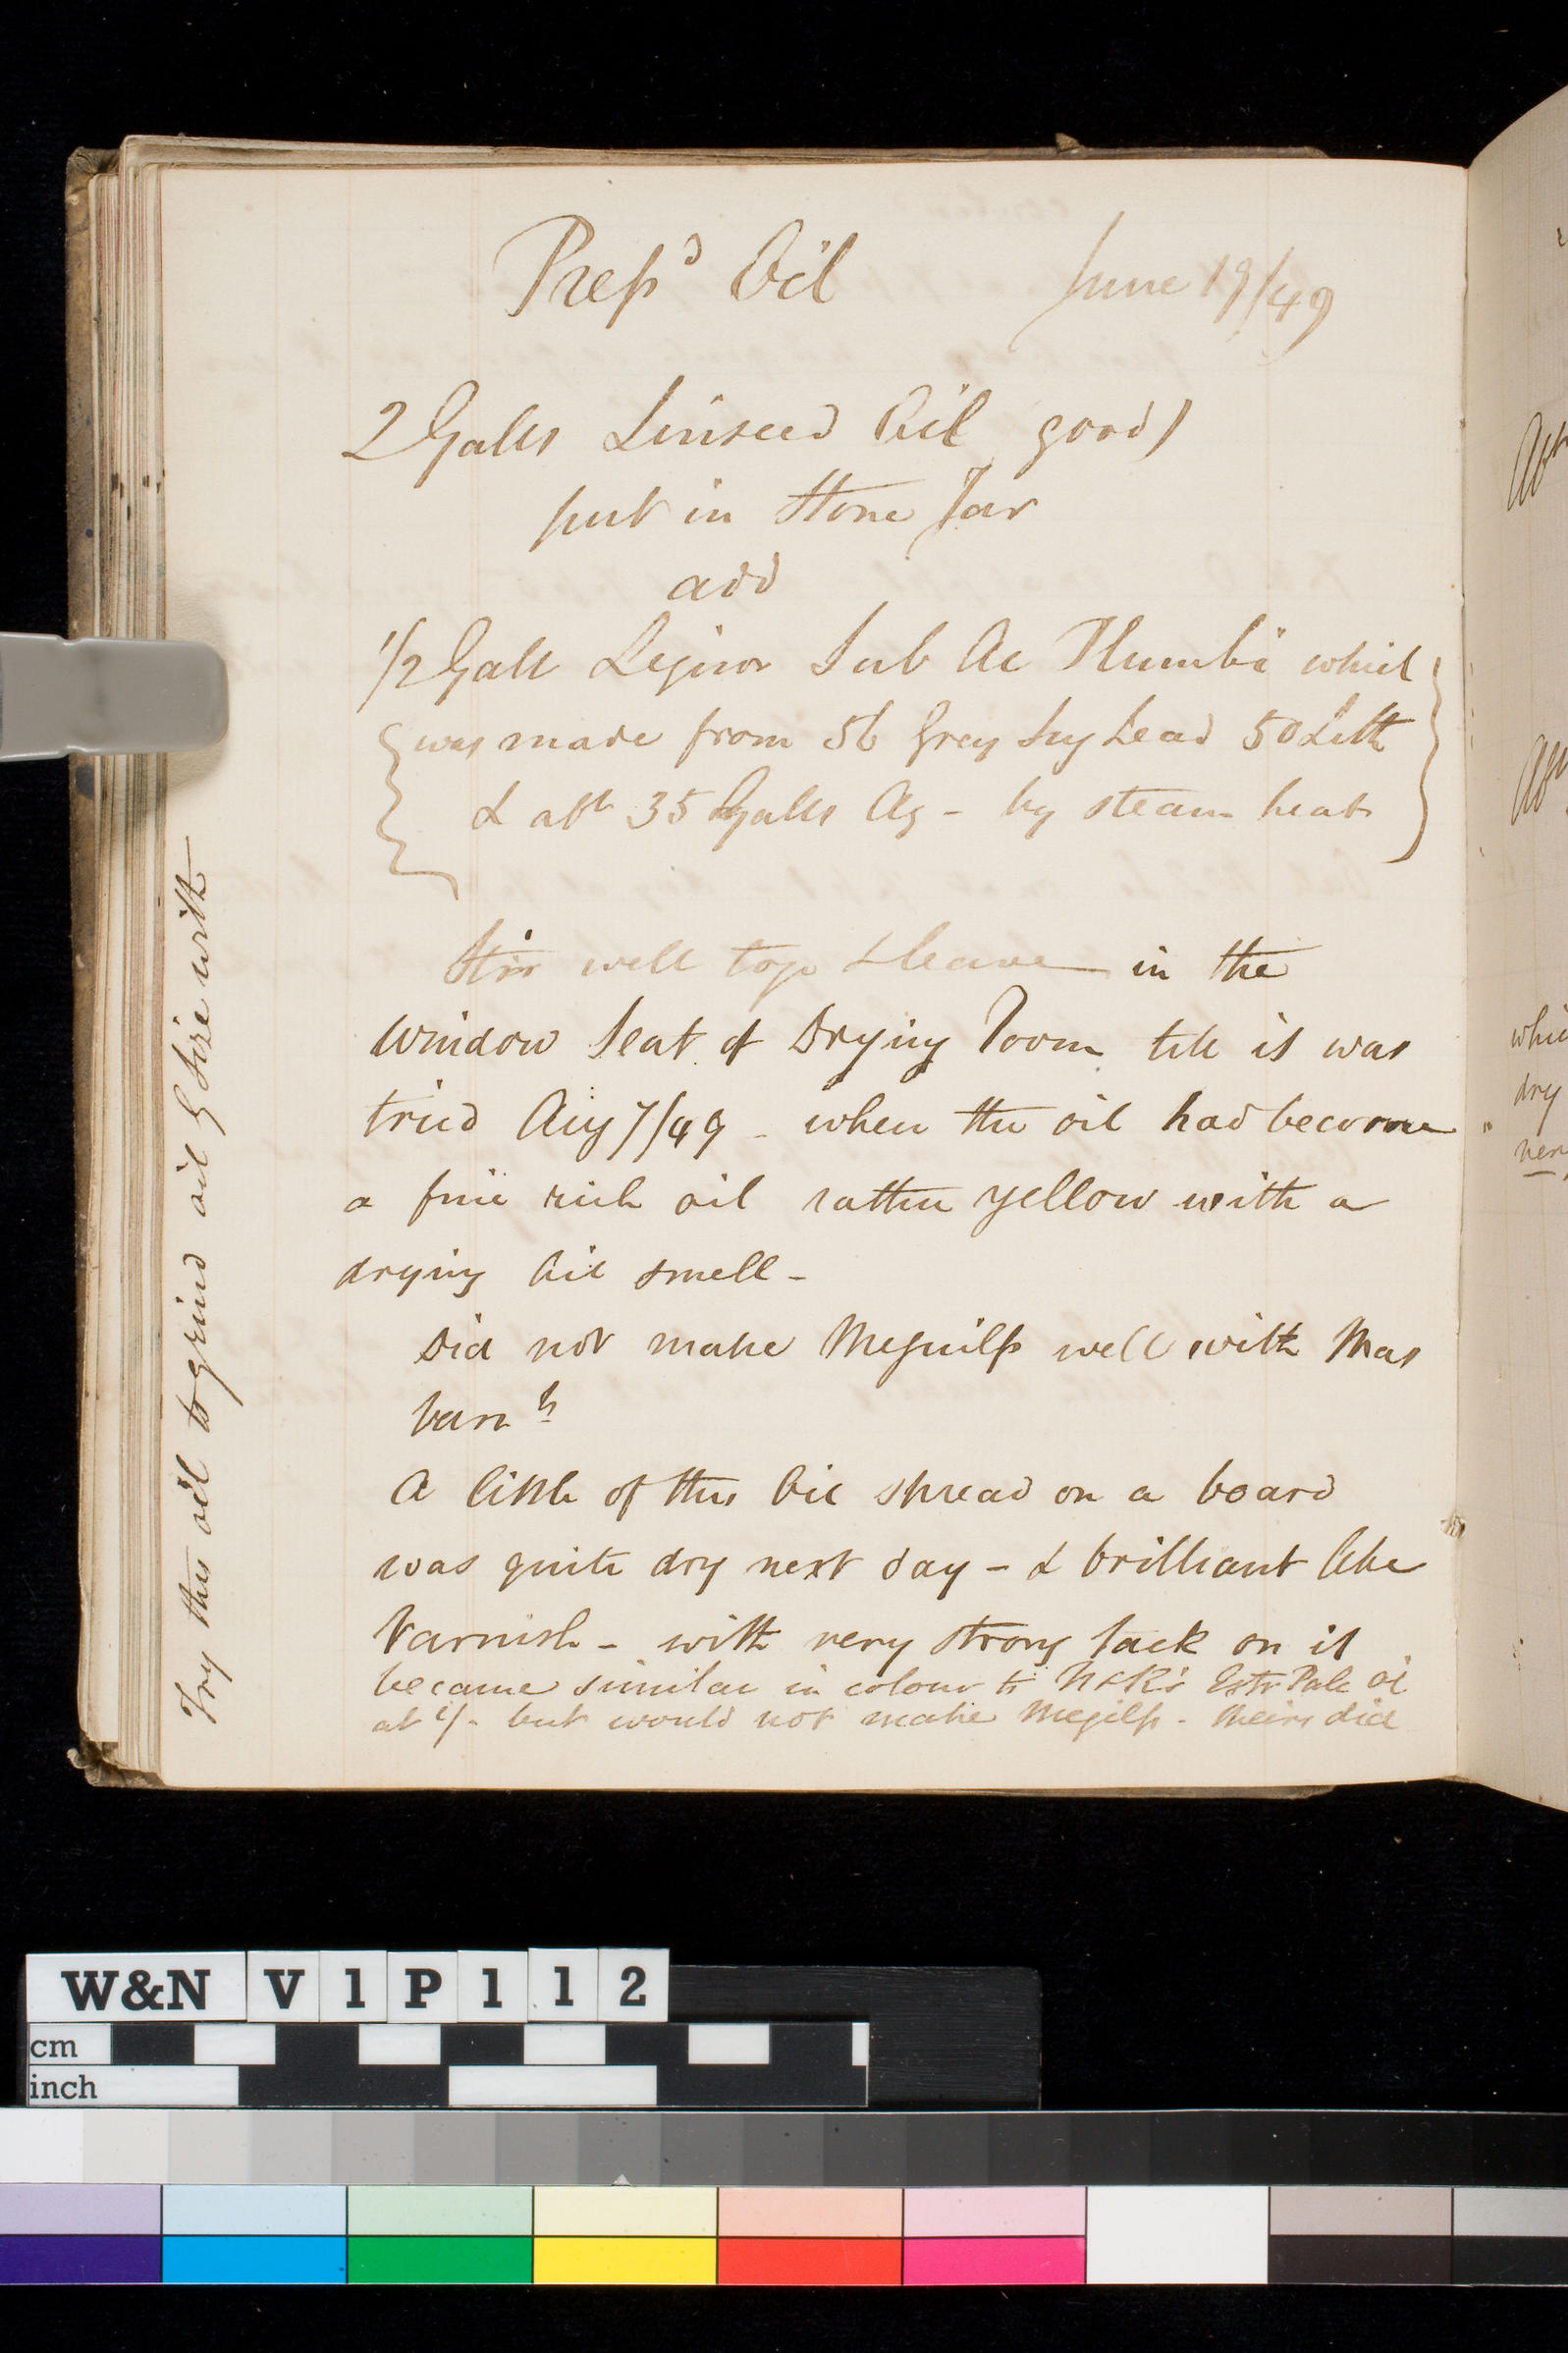 Prepd Oil June 19/49
2 Galls Linseed Oil good)
put in Stone Jar
add
1/2 Gall Liquor Sub Ac Plumbi which
was made from 56 Grey Sug Lead 50 Lith
& abt 35 Galls Aq - by steam heat
Stir well togr & leave in the
window seat of Drying Room till it was
tried Aug 7/49 - when the oil had become
a fine rich oil rather yellow with a
drying Oil smell -
Did not make Meguilp well with Mas
varnh
A little of this Oil spread on a board
was quite dry next day - & brilliant like
Varnish - with very strong tack on it
became similar in colour to Extr Pale Oil
at but would not make Megilp - theirs did
Try this oil to grind oil G Size with
W&N V1P112
cm
inch